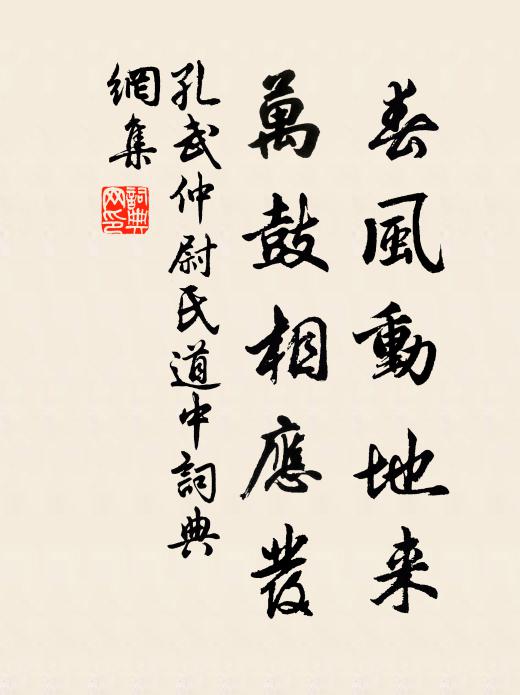 春風動地来
萬鼓相應發
孔武仲尉氏道中詞典
網集
詞典網印